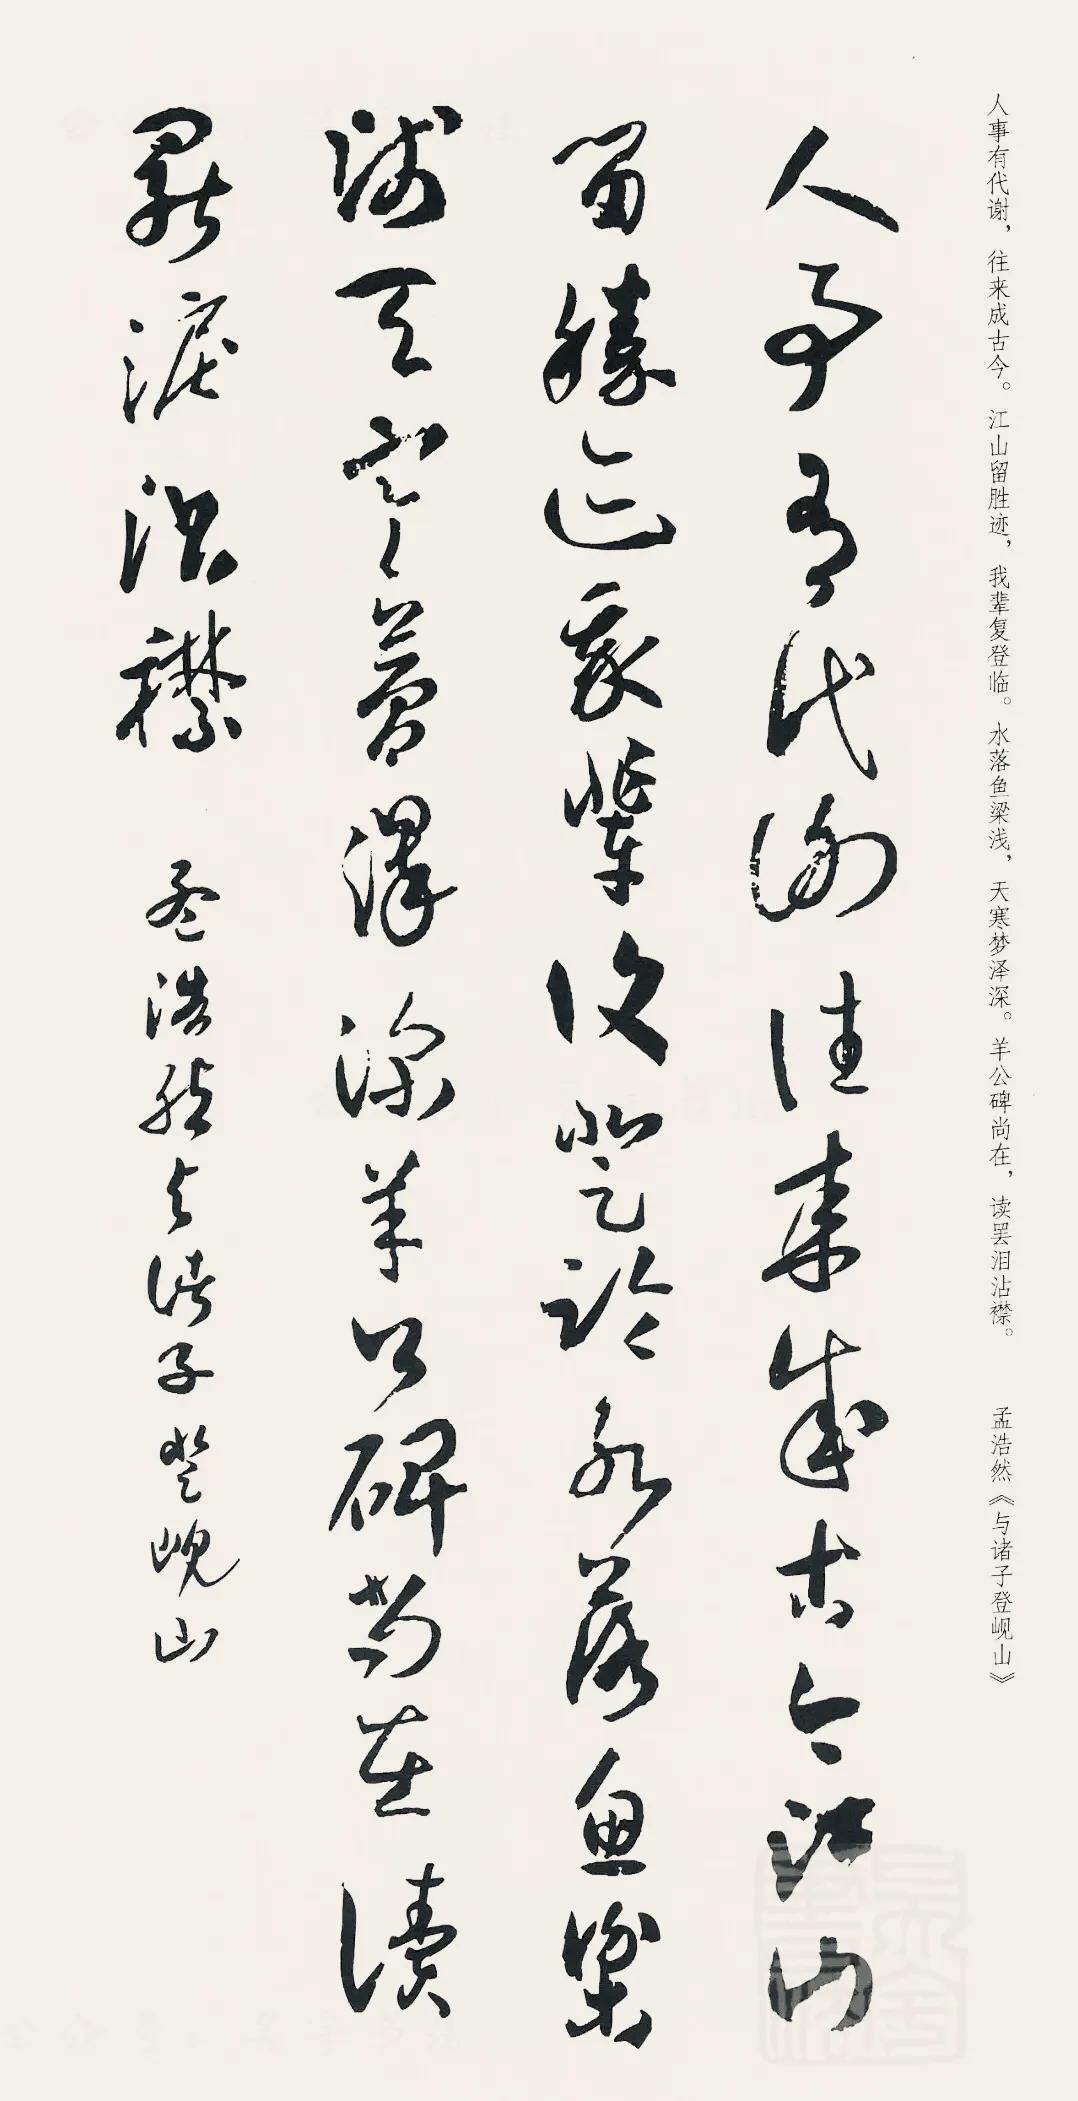 人事有代谢，往来成古今。江山留胜迹，我辈复登临。水落鱼梁浅，天寒梦泽深。羊公碑尚在，读罢泪沾襟。 孟浩然《与诸子登岘山》
人事有代謝往来成古今江山
留勝迹我輩復登臨水落魚梁
淺天寒夢澤深羊公碑尚在讀
罷淚沾襟 孟浩然与諸子登峴山